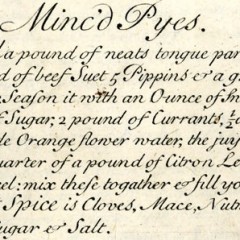 Minc'd Pyes.
a pound of neats tongue par
d of beef Suet 5 Pippins & a g
Season it with an Ounce of
f Sugar, 2 pound of Currants, ½
le Orange flower water, the juy
uarter of a pound of Citron Le
el: mix these together & fill yo
Spice is Cloves, Mace, Nutm
ugar & Salt.